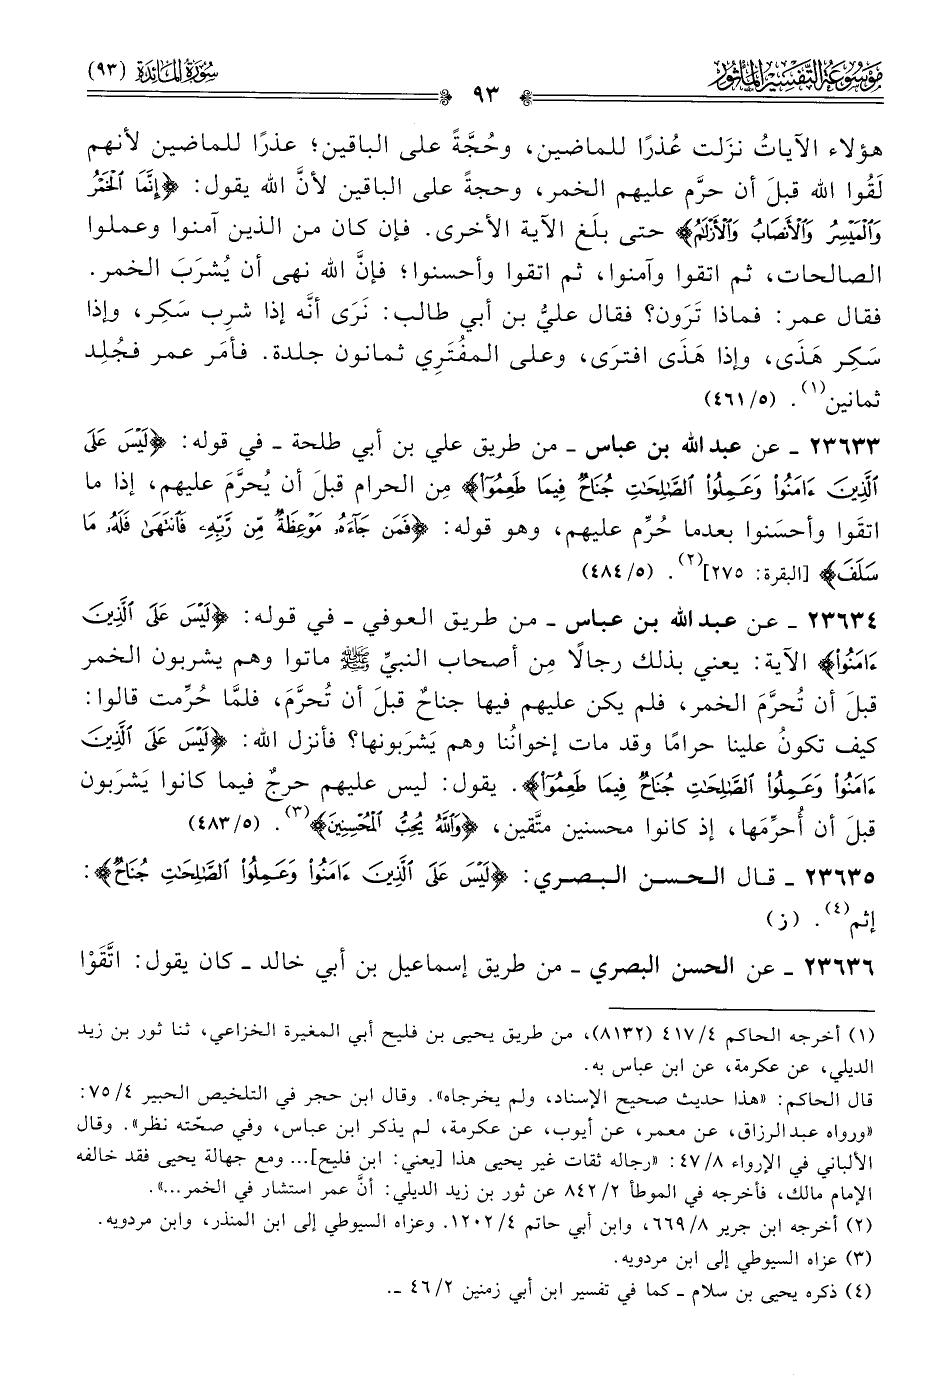 مَوْسُوعَة التَّفْسِير المَأْثُور
سُورَةُ المَائِدَة (٩٣)
٩٣
هؤلاء الآياتُ نزَلت عُذرًا للماضين، وحُجَّةً على الباقين؛ عذرًا للماضين لأنهم
لَقُوا الله قبلَ أن حرَّم عليهم الخمر، وحجةً على الباقين لأنَّ الله يقول: ﴿إِنَّمَا ٱلْخَمْرُ
وَٱلْمَيْسِرُ وَٱلْأَنصَابُ وَٱلْأَزْلَٰمُ﴾ حتى بلَغ الآية الأخرى. فإن كان من الذين آمنوا وعملوا
الصالحات، ثم اتقوا وآمنوا، ثم اتقوا وأحسنوا؛ فإنَّ الله نهى أن يُشرَبَ الخمر.
فقال عمر: فماذا تَرَون؟ فقال عليُّ بن أبي طالب: نَرَى أنَّه إذا شرِب سَكِر، وإذا
سَكِر هَذَى، وإذا هَذَى افترَى، وعلى المفْتَرِي ثمانون جلدة. فأمَر عمر فجُلِد
ثمانين(١). (٥/ ٤٦١)
٢٣٦٣٣ ـ عن عبد الله بن عباس ـ من طريق علي بن أبي طلحة ـ في قوله: ﴿لَيْسَ عَلَى
ٱلَّذِينَ ءَامَنُوا۟ وَعَمِلُوا۟ ٱلصَّٰلِحَٰتِ جُنَاحٌ فِيمَا طَعِمُوٓا۟﴾ مِن الحرام قبلَ أن يُحرَّمَ عليهم، إذا ما
اتقَوا وأحسَنوا بعدما حُرِّم عليهم، وهو قوله: ﴿فَمَن جَآءَهُۥ مَوْعِظَةٌ مِّن رَّبِّهِۦ فَٱنتَهَىٰ فَلَهُۥ مَا
سَلَفَ﴾ [البقرة: ٢٧٥](٢). (٥/ ٤٨٤)
٢٣٦٣٤ ـ عن عبد الله بن عباس ـ من طريق العوفي ـ في قوله: ﴿لَيْسَ عَلَى ٱلَّذِينَ
ءَامَنُوا۟﴾ الآية: يعني بذلك رجالًا مِن أصحاب النبيِّ ﷺ ماتوا وهم يشربون الخمر
قبلَ أن تُحرَّمَ الخمر، فلم يكن عليهم فيها جناحٌ قبلَ أن تُحرَّمَ، فلمَّا حُرِّمت قالوا:
كيف تكونُ علينا حرامًا وقد مات إخوانُنا وهم يَشرَبونها؟ فأنزل الله: ﴿لَيْسَ عَلَى ٱلَّذِينَ
ءَامَنُوا۟ وَعَمِلُوا۟ ٱلصَّٰلِحَٰتِ جُنَاحٌ فِيمَا طَعِمُوٓا۟﴾. يقول: ليس عليهم حرجٌ فيما كانوا يَشرَبون
قبلَ أن أُحرِّمَها، إذ كانوا محسنين متَّقين، ﴿وَٱللَّهُ يُحِبُّ ٱلْمُحْسِنِينَ﴾(٣). (٥/ ٤٨٣)
٢٣٦٣٥ ـ قال الحسن البصري: ﴿لَيْسَ عَلَى ٱلَّذِينَ ءَامَنُوا۟ وَعَمِلُوا۟ ٱلصَّٰلِحَٰتِ جُنَاحٌ﴾:
إثم(٤). (ز)
٢٣٦٣٦ ـ عن الحسن البصري ـ من طريق إسماعيل بن أبي خالد ـ كان يقول: اتَّقَوْا
(١) أخرجه الحاكم ٤/ ٤١٧ (٨١٣٢)، من طريق يحيى بن فليح أبي المغيرة الخزاعي، ثنا ثور بن زيد
الديلي، عن عكرمة، عن ابن عباس به.
قال الحاكم: «هذا حديث صحيح الإسناد، ولم يخرجاه». وقال ابن حجر في التلخيص الحبير ٤/ ٧٥:
«ورواه عبد الرزاق، عن معمر، عن أيوب، عن عكرمة، لم يذكر ابن عباس، وفي صحّته نظر». وقال
الألباني في الإرواء ٨/ ٤٧: «رجاله ثقات غير يحيى هذا [يعني: ابن فليح]... ومع جهالة يحيى فقد خالفه
الإمام مالك، فأخرجه في الموطأ ٢/ ٨٤٢ عن ثور بن زيد الديلي: أنَّ عمر استشار في الخمر...».
(٢) أخرجه ابن جرير ٨/ ٦٦٩، وابن أبي حاتم ٤/ ١٢٠٢. وعزاه السيوطي إلى ابن المنذر، وابن مردويه.
(٣) عزاه السيوطي إلى ابن مردويه.
(٤) ذكره يحيى بن سلام ـ كما في تفسير ابن أبي زمنين ٢/ ٤٦ ـ.